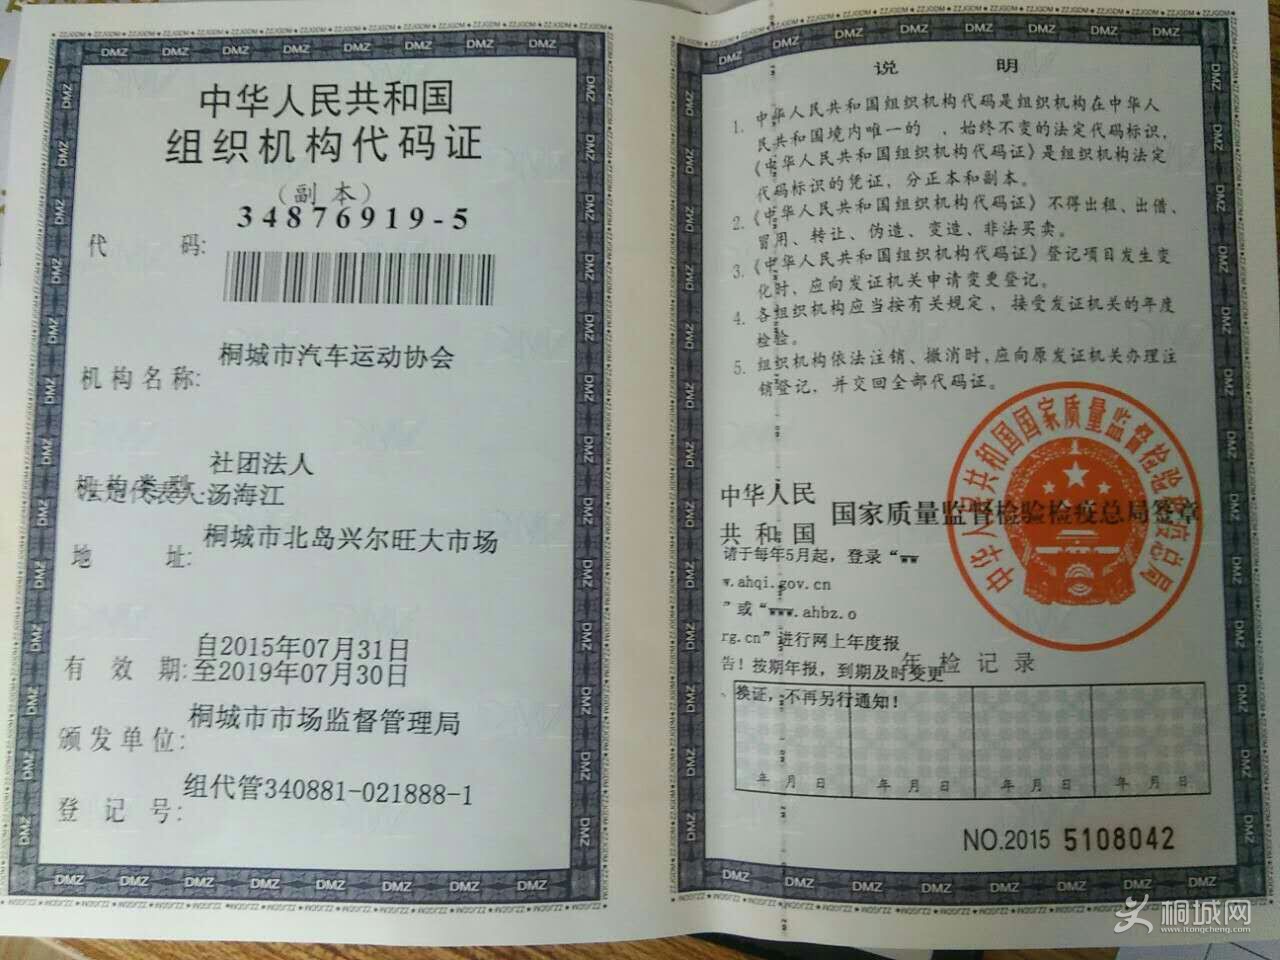 中华人民共和国
组织机构代码证
(副 本)
代 码: 34876919-5
机构名称: 桐城市汽车运动协会
机构类型: 社团法人
法定代表人:汤海江
地 址: 桐城市北岛兴尔旺大市场
有 效 期: 自2015年07月31日
至2019年07月30日
颁发单位: 桐城市市场监督管理局
登 记 号: 组代管340881-021888-1
说 明
1. 中华人民共和国组织机构代码是组织机构在中华人
民共和国境内唯一的 、始终不变的法定代码标识,
《中华人民共和国组织机构代码证》是组织机构法定
代码标识的凭证,分正本和副本。
2. 《中华人民共和国组织机构代码证》不得出租、出借、
冒用、转让、伪造、变造、非法买卖。
3. 《中华人民共和国组织机构代码证》登记项目发生变
化时、应向发证机关申请变更登记。
4. 各组织机构应当按有关规定,接受发证机关的年度
检验。
5. 组织机构依法注销、撤消时,应向原发证机关办理注
销登记,并交回全部代码证。
中华人民
共和国
国家质量监督检验检疫总局签章
中华人民共和国国家质量监督检验检疫总局
请于每年5月起,登录“ww
w.ahqi.gov.cn
”或“www.ahbz.o
rg.cn”进行网上年度报
告!按期年报,到期及时变更
、换证,不再另行通知!
年 检 记 录
年 月 日 年 月 日 年 月 日 年 月 日
NO.2015 5108042
桐城网
www.itongcheng.com